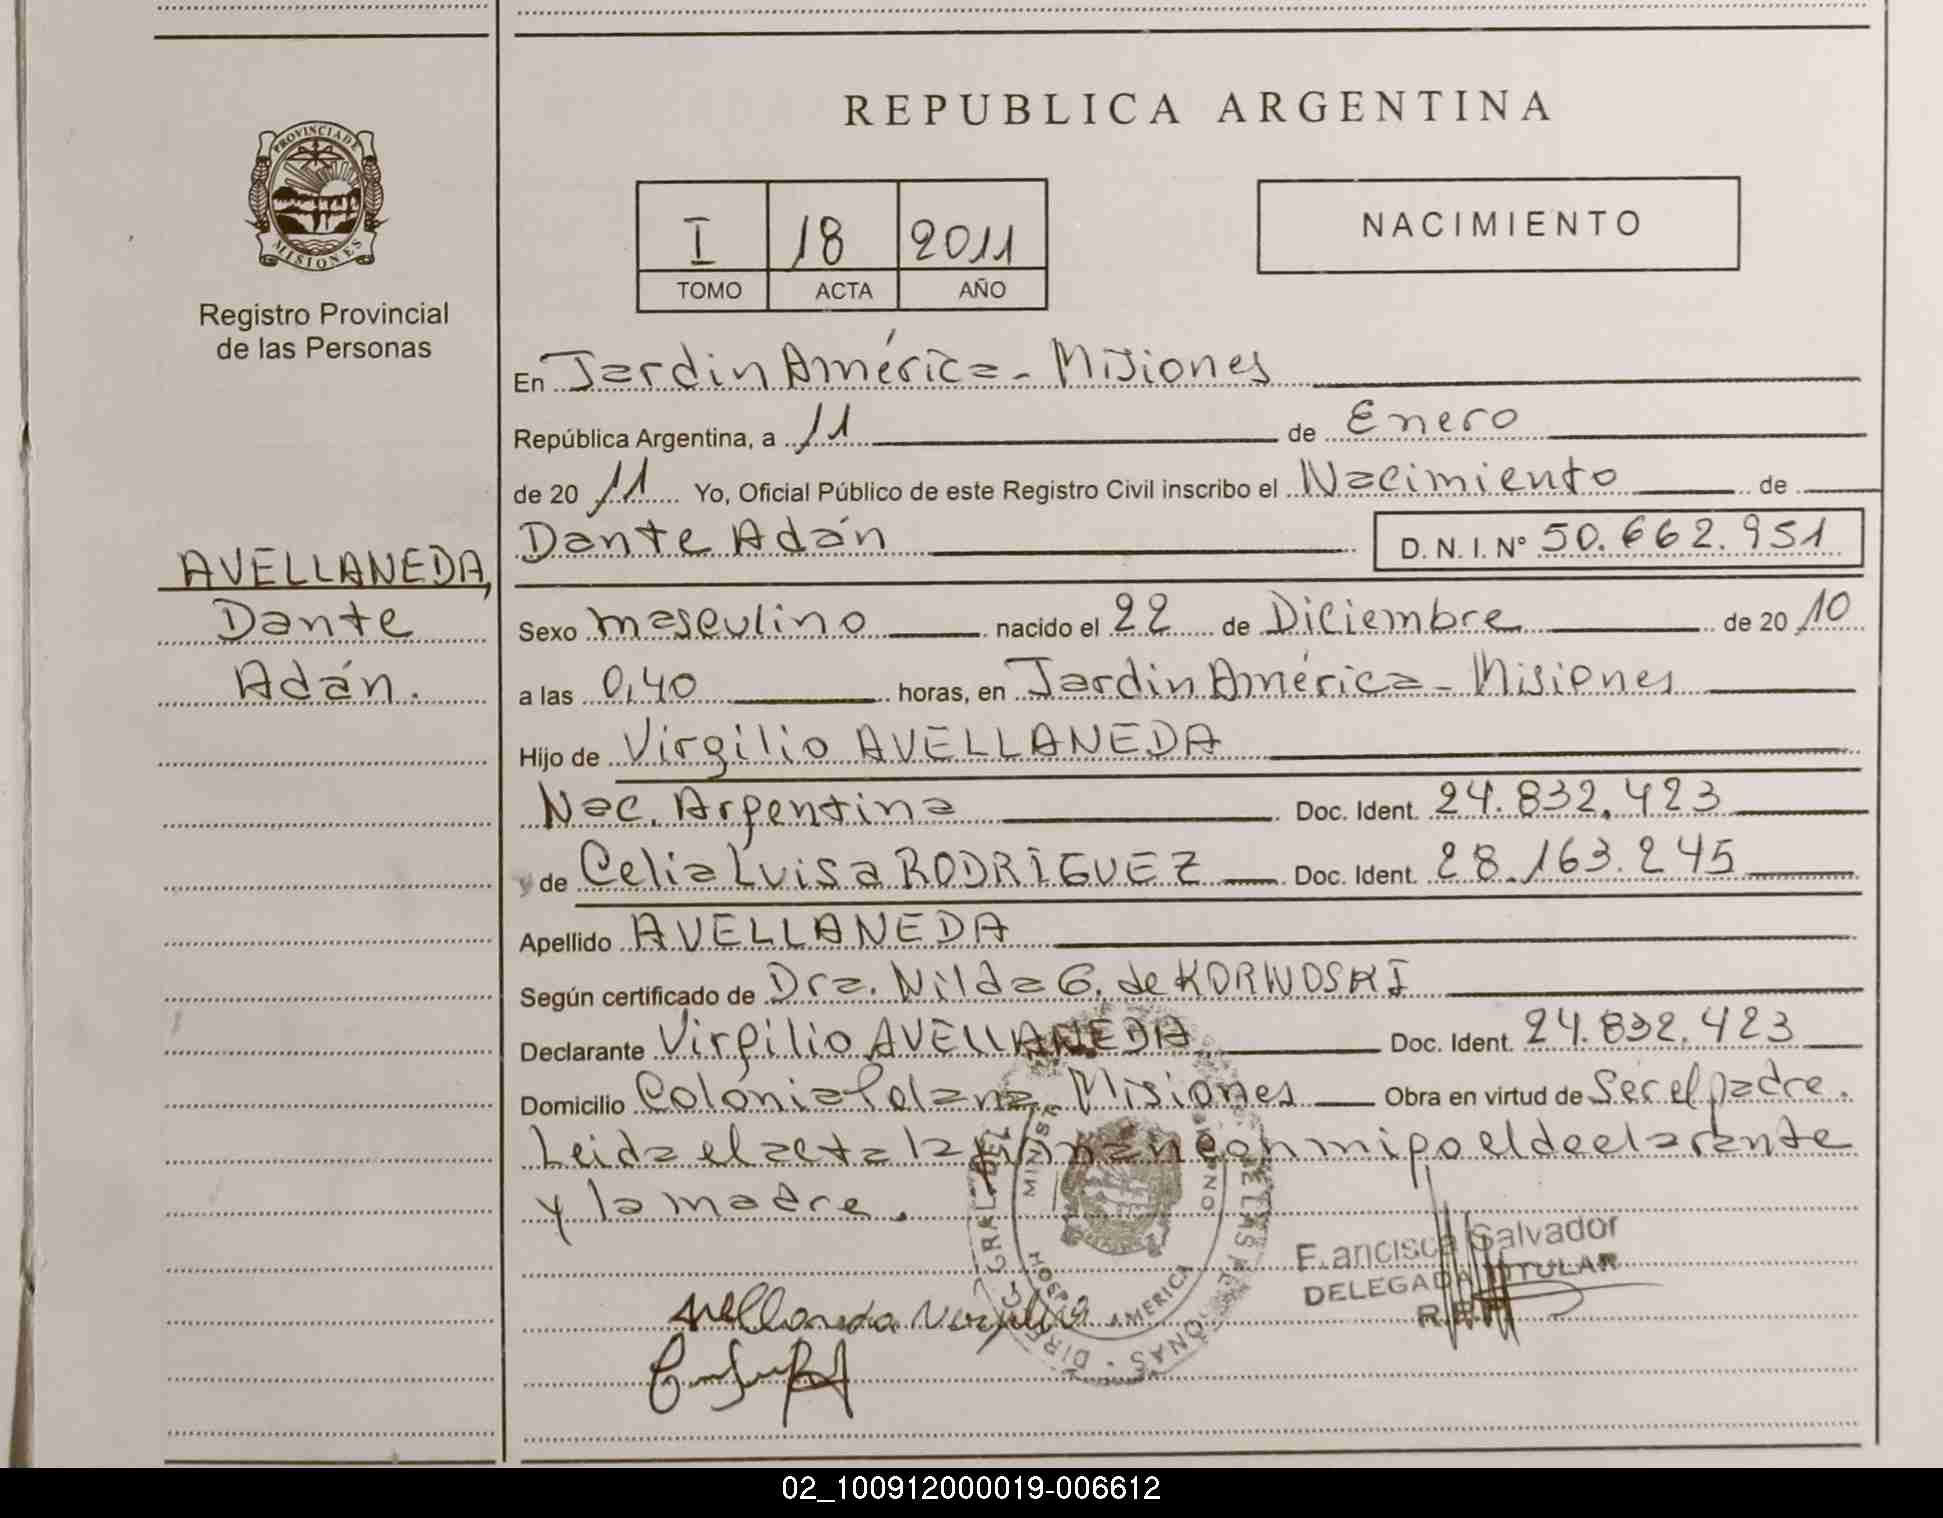 REPUBLICA ARGENTINA
PROVINCIA DE
MISIONES
Registro Provincial
de las Personas
I 18 2011
TOMO ACTA AÑO
NACIMIENTO
En Jardin América - Misiones
República Argentina, a 11 de Enero
de 20 11 Yo, Oficial Público de este Registro Civil inscribo el Nacimiento de
Dante Adán D. N. I. Nº 50.662.951
AVELLANEDA,
Dante
Adán.
Sexo masculino nacido el 22 de Diciembre de 20 10
a las 0,40 horas, en Jardin América - Misiones
Hijo de Virgilio AVELLANEDA
Nac. Argentina Doc. Ident. 24.832.423
y de Celia Luisa RODRIGUEZ Doc. Ident. 28.163.245
Apellido AVELLANEDA
Según certificado de Dra. Nilda G. de KORNOSKI
Declarante Virgilio AVELLANEDA Doc. Ident. 24.832.423
Domicilio Colonia Polana Misiones Obra en virtud de Ser el padre.
Leida el acta la firman conmigo el declarante
y la madre.
Avellaneda Virgilio
Francisca Salvador
DELEGADA TITULAR
AMERICA
02_100912000019-006612